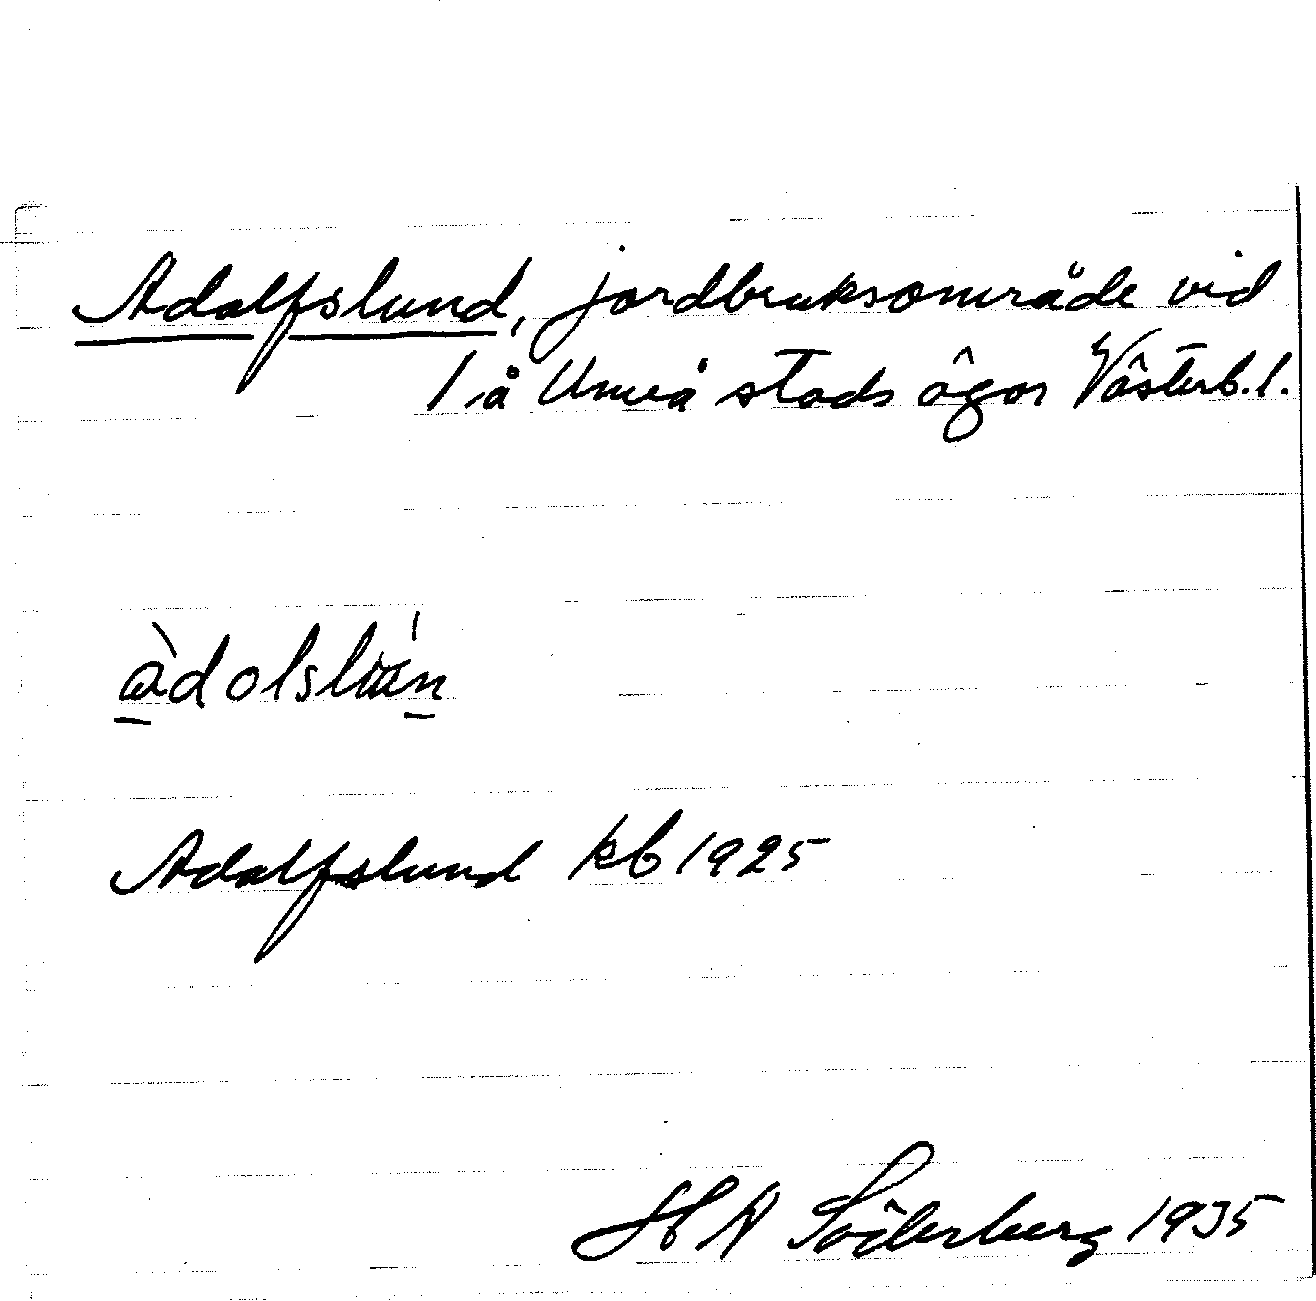 Adolfslund, jordbruksområde vid
l. å Umeå stads ägor Västerb. l.
àdolslún
Adolfslund kb 1925
H A Söderberg 1935